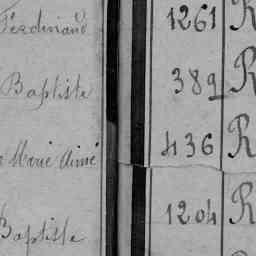 Ferdinand 1261 R
Baptiste 389 R
Marie Aimé 436 R
Baptiste 1204 R